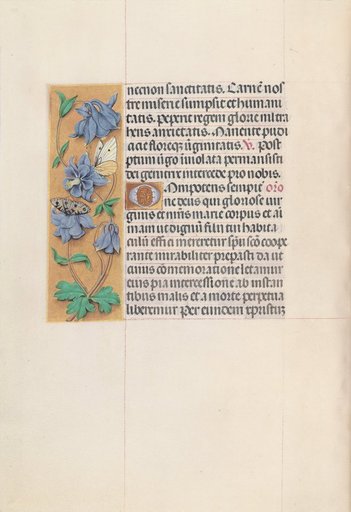 necnon sanctitatis. Carnē nos
tre miserie sumpsit et humani
tatis. Peperit regem glorie ultra
hens anxietatis. Manente pudi
cicie floreq; ūginitatis. V. Post
partum ūgo īuiolata permansisti
dei genitrix intercede pro nobis.
Omnipotens sempit' oro
ne deus qui gloriose vir
ginis et m̄ris marie corpus et aī
mam ut dignū filii tui habita
culū effici mereretur spū scō coope
rante mirabiliter preparasti da ut
cuius comemoratione letamur
eius pia intercessione ab instan
tibus malis et a morte perpetua
liberemur Per eundem xpristum